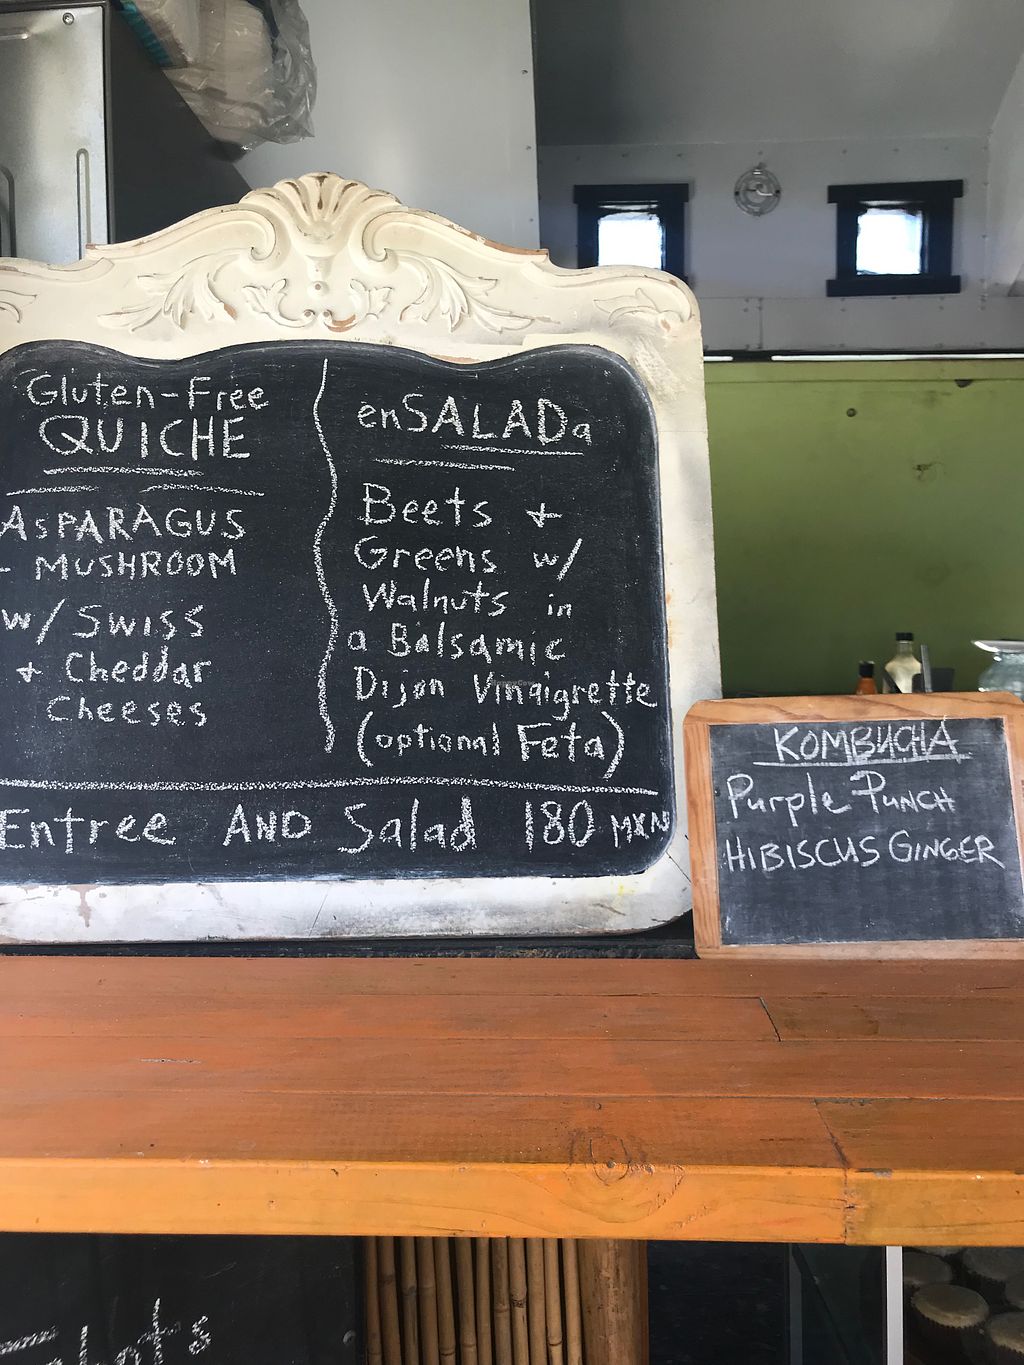 Gluten-Free
QUICHE
ASPARAGUS
- MUSHROOM
w/ Swiss
+ Cheddar
Cheeses
enSALADa
Beets +
Greens w/
Walnuts in
a Balsamic
Dijon Vinaigrette
(optional Feta)
Entree AND Salad 180 MXN
KOMBUCHA
Purple Punch
HIBISCUS GINGER